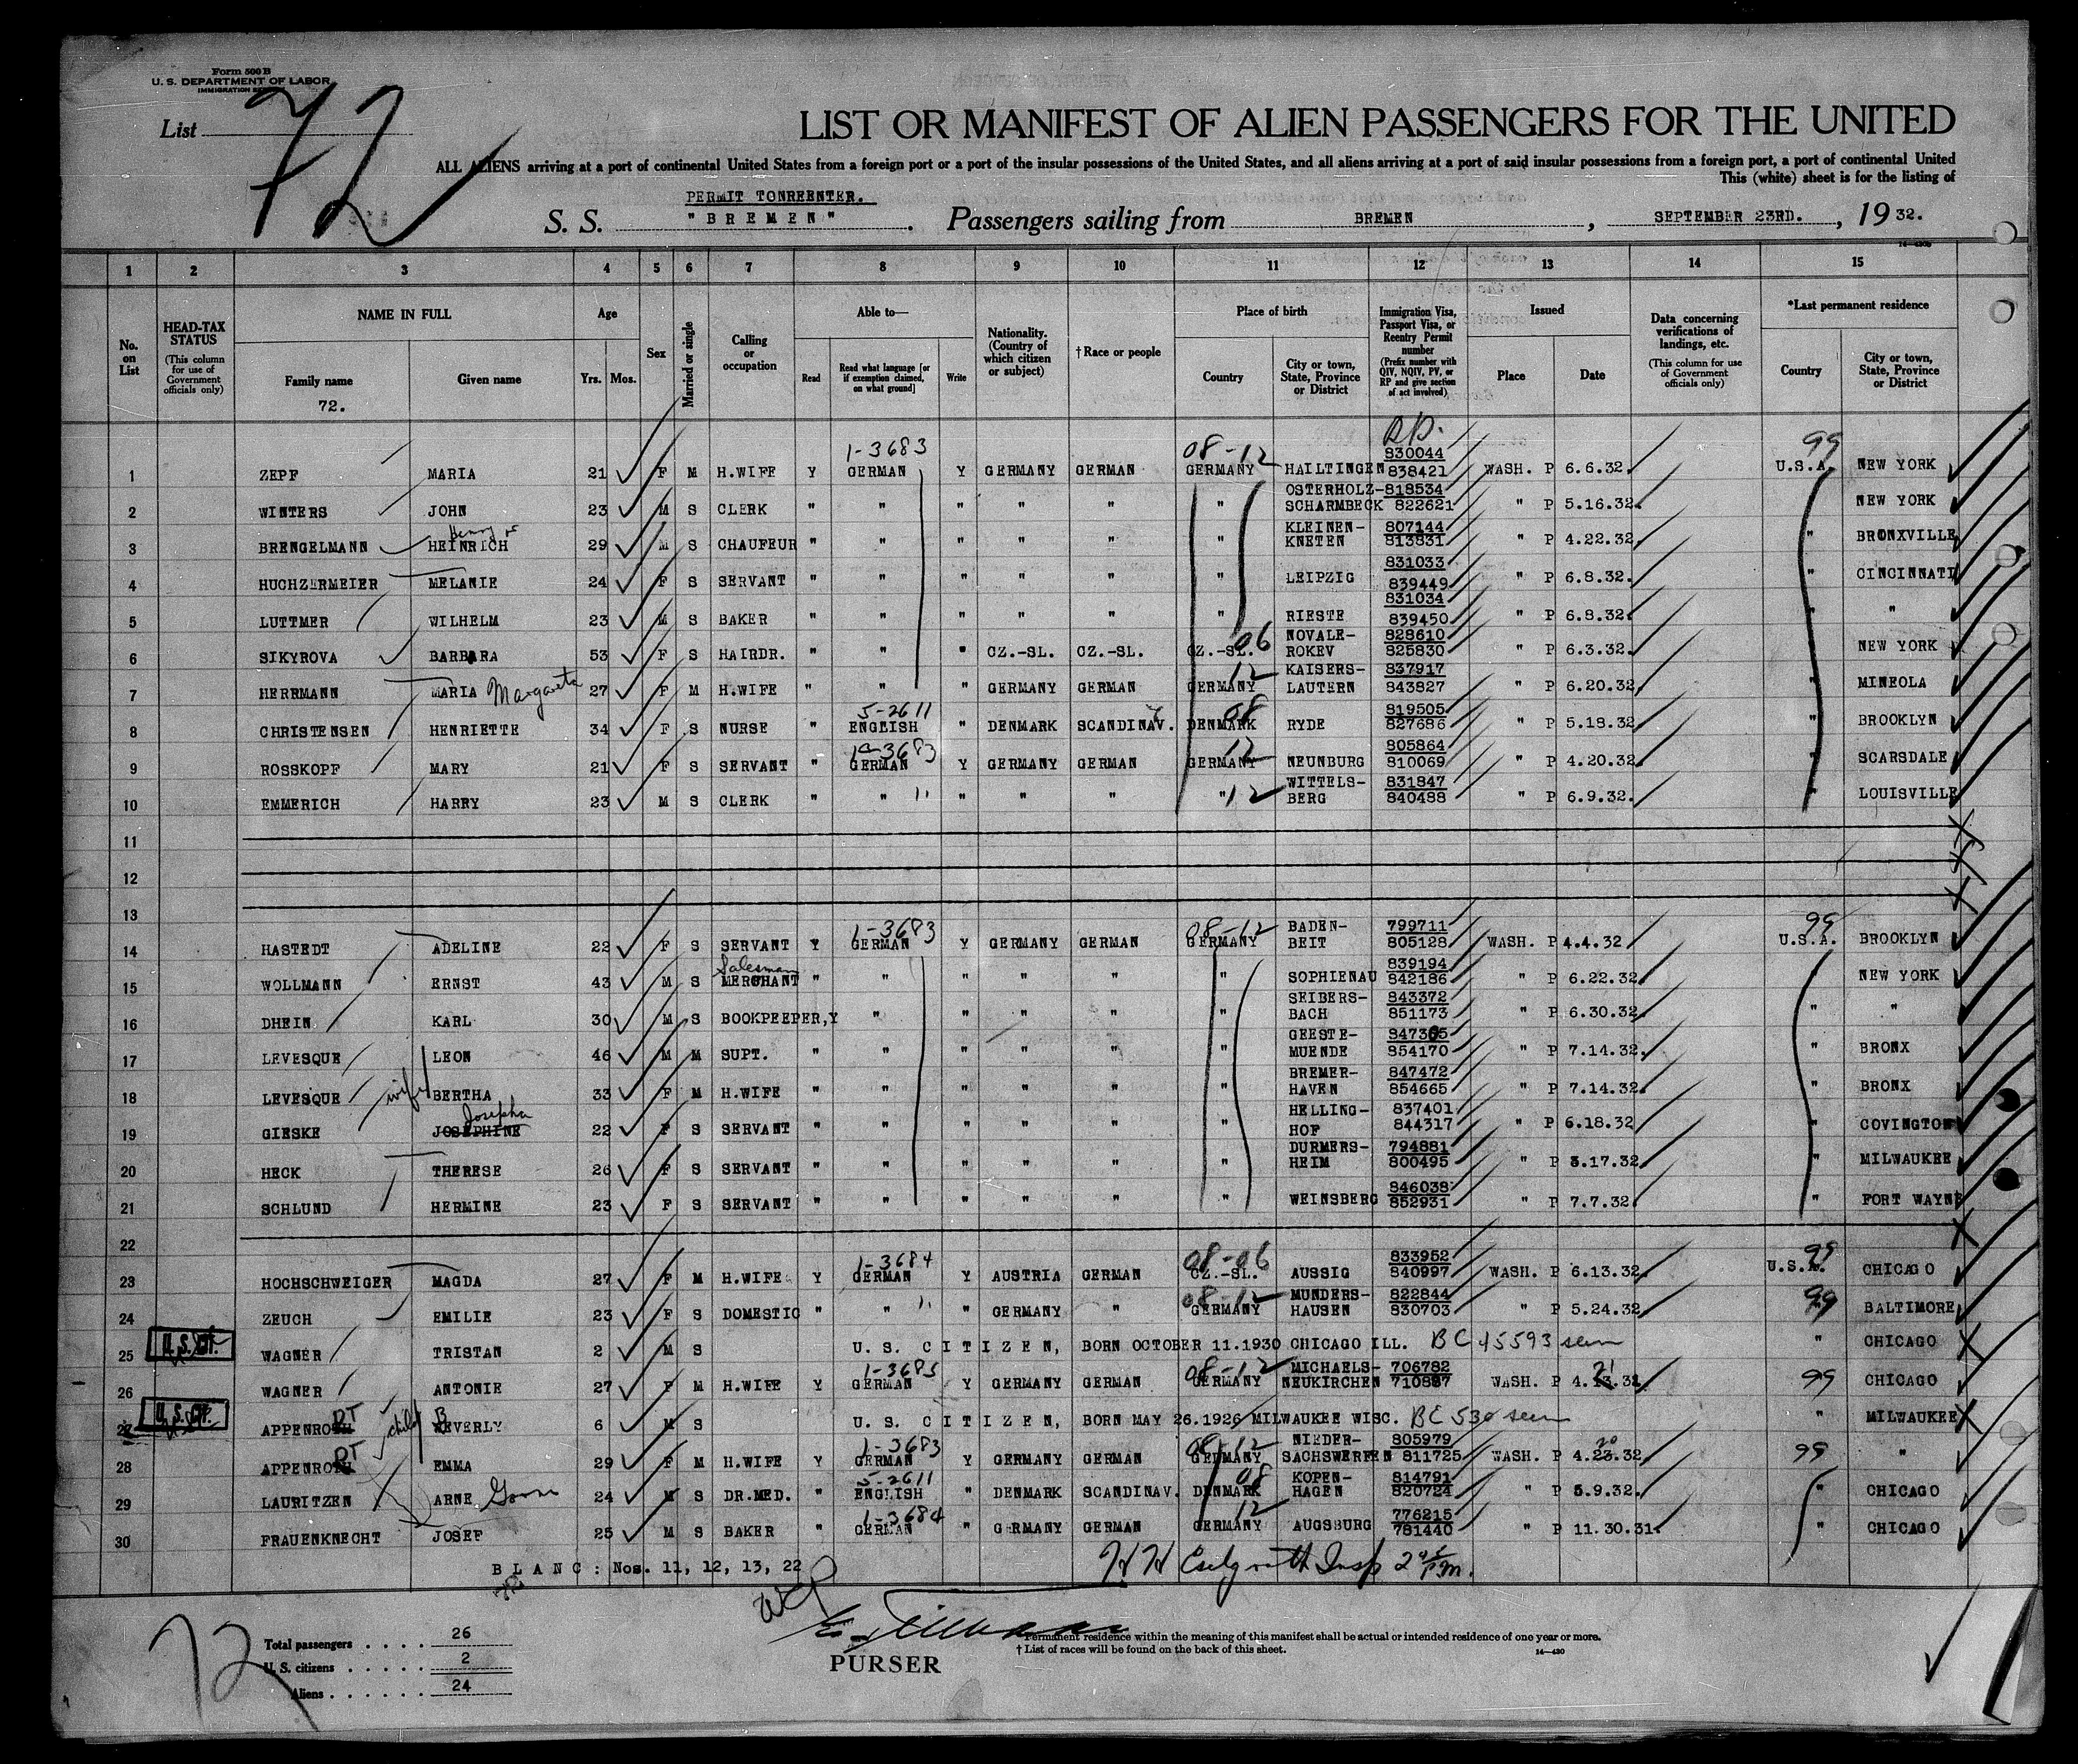 Form 500 B
U. S. DEPARTMENT OF LABOR
IMMIGRATION
List 72
LIST OR MANIFEST OF ALIEN PASSENGERS FOR THE UNITED
ALL ALIENS arriving at a port of continental United States from a foreign port or a port of the insular possessions of the United States, and all aliens arriving at a port of said insular possessions from a foreign port, a port of continental United
This (white) sheet is for the listing of
PERMIT TONREENTER.
S. S. "BREMEN". Passengers sailing from BREMEN, SEPTEMBER 23RD., 1932.
1 2 3 4 5 6 7 8 9 10 11 12 13 14 15
No. on List
HEAD-TAX STATUS (This column for use of Government officials only)
NAME IN FULL Family name Given name
72.
Age Yrs. Mos.
Sex
Married or single
Calling or occupation
Able to— Read Read what language [or if exemption claimed, on what ground] Write
Nationality. (Country of which citizen or subject)
† Race or people
Place of birth Country City or town, State, Province or District
Immigration Visa, Passport Visa, or Reentry Permit number (Prefix number with QIV, NQIV, PV, or RP and give section of act involved)
Issued Place Date
Data concerning verifications of landings, etc. (This column for use of Government officials only)
*Last permanent residence Country City or town, State, Province or District
1-3683 08-12 830044 99
1 ZEPF MARIA 21 F M H.WIFE Y GERMAN Y GERMANY GERMAN GERMANY HAILTINGEN 838421 WASH. P 6.6.32. U.S.A. NEW YORK
OSTERHOLZ- 818534
2 WINTERS JOHN 23 M S CLERK " " " " " " SCHARMBECK 822621 " P 5.16.32. NEW YORK
Henry or KLEINEN- 807144
3 BRENGELMANN HEINRICH 29 M S CHAUFEUR " " " " " " KNETEN 813831 " P 4.22.32. " BRONXVILLE
831033
4 HUCHZERMEIER MELANIE 24 F S SERVANT " " " " " " LEIPZIG 839449 " P 6.8.32. " CINCINNATI
831034
5 LUTTMER WILHELM 23 M S BAKER " " " " " " RIESTE 839450 " P 6.8.32. " "
06 NOVALE- 828610
6 SIKYROVA BARBARA 53 F S HAIRDR. " " " CZ.-SL. CZ.-SL. CZ.-SL. ROKEV 825830 " P 6.3.32. " NEW YORK
12 KAISERS- 837917
7 HERRMANN MARIA Margareta 27 F M H.WIFE " " " GERMANY GERMAN GERMANY LAUTERN 843827 " P 6.20.32. " MINEOLA
5-2611 08 819505
8 CHRISTENSEN HENRIETTE 34 F S NURSE " ENGLISH " DENMARK SCANDINAV. DENMARK RYDE 827686 " P 5.18.32. " BROOKLYN
3683 12 805864
9 ROSSKOPF MARY 21 F S SERVANT " GERMAN Y GERMANY GERMAN GERMANY NEUNBURG 810069 " P 4.20.32. " SCARSDALE
WITTELS- 831847
10 EMMERICH HARRY 23 M S CLERK " " " " " " " 12 BERG 840488 " P 6.9.32. " LOUISVILLE
11
12
13
1-3683 08-12 BADEN- 799711 99
14 HASTEDT ADELINE 22 F S SERVANT Y GERMAN Y GERMANY GERMAN GERMANY BEIT 805128 WASH. P 4.4.32 U.S.A. BROOKLYN
Salesman 839194
15 WOLLMANN ERNST 43 M S MERCHANT " " " " " " SOPHIENAU 842186 " P 6.22.32 " NEW YORK
SEIBERS- 843372
16 DHEIN KARL 30 M S BOOKPEEPER,Y " " " " " BACH 851173 " P 6.30.32 " "
GEESTE- 847365
17 LEVESQUE LEON 46 M M SUPT. " " " " " " MUENDE 854170 " P 7.14.32. " BRONX
BREMER- 847472
18 LEVESQUE wife BERTHA 33 F M H.WIFE " " " " " " HAVEN 854665 " P 7.14.32. " BRONX
Josepha HELLING- 837401
19 GIESKE JOSEPHINE 22 F S SERVANT " " " " " " HOF 844317 " P 6.18.32 " COVINGTON
DURMERS- 794881
20 HECK THERESE 26 F S SERVANT " " " " " " HEIM 800495 " P 3.17.32. " MILWAUKEE
846038
21 SCHLUND HERMINE 23 F S SERVANT " " " " " " WEINSBERG 852931 " P 7.7.32. " FORT WAYNE
22
1-3684 08-06 833952 99
23 HOCHSCHWEIGER MAGDA 27 F M H.WIFE Y GERMAN Y AUSTRIA GERMAN CZ.-SL. AUSSIG 840997 WASH. P 6.13.32. U.S.A. CHICAGO
08-12 MUNDERS- 822844 99
24 ZEUCH EMILIE 23 F S DOMESTIC " " " " GERMANY " GERMANY HAUSEN 830703 " P 5.24.32. BALTIMORE
U.S. Cit.
25 WAGNER TRISTAN 2 M S U. S. CITIZEN, BORN OCTOBER 11.1930 CHICAGO ILL. BC 45593 seen " CHICAGO
1-3685 08-12 MICHAELS- 706782 21
26 WAGNER ANTONIE 27 F M H.WIFE Y GERMAN Y GERMANY GERMAN GERMANY NEUKIRCHEN 710887 WASH. P 4.23.32. 99 CHICAGO
U.S. Cit.
27 APPENROTH DT child BEVERLY 6 M S U. S. CITIZEN, BORN MAY 26.1926 MILWAUKEE WISC. BC 530 seen " MILWAUKEE
1-3683 08-12 NIEDER- 805979 20
28 APPENROTH DT EMMA 29 F M H.WIFE Y GERMAN Y GERMANY GERMAN GERMANY SACHSWERFEN 811725 WASH. P 4.23.32. 99 "
5-2611 08 KOPEN- 814791
29 LAURITZEN ARNE 24 M S DR.MED. " ENGLISH " DENMARK SCANDINAV. DENMARK HAGEN 820724 " P 5.9.32. " CHICAGO
1-3684 12 776215
30 FRAUENKNECHT JOSEF 25 M S BAKER " GERMAN " GERMANY GERMAN GERMANY AUGSBURG 781440 " P 11.30.31. " CHICAGO
BLANC: Nos. 11, 12, 13, 22
72
Total passengers . . . . 26
U. S. citizens . . . . . 2
Aliens . . . . . . 24
PURSER
* Permanent residence within the meaning of this manifest shall be actual or intended residence of one year or more.
† List of races will be found on the back of this sheet.
14—430